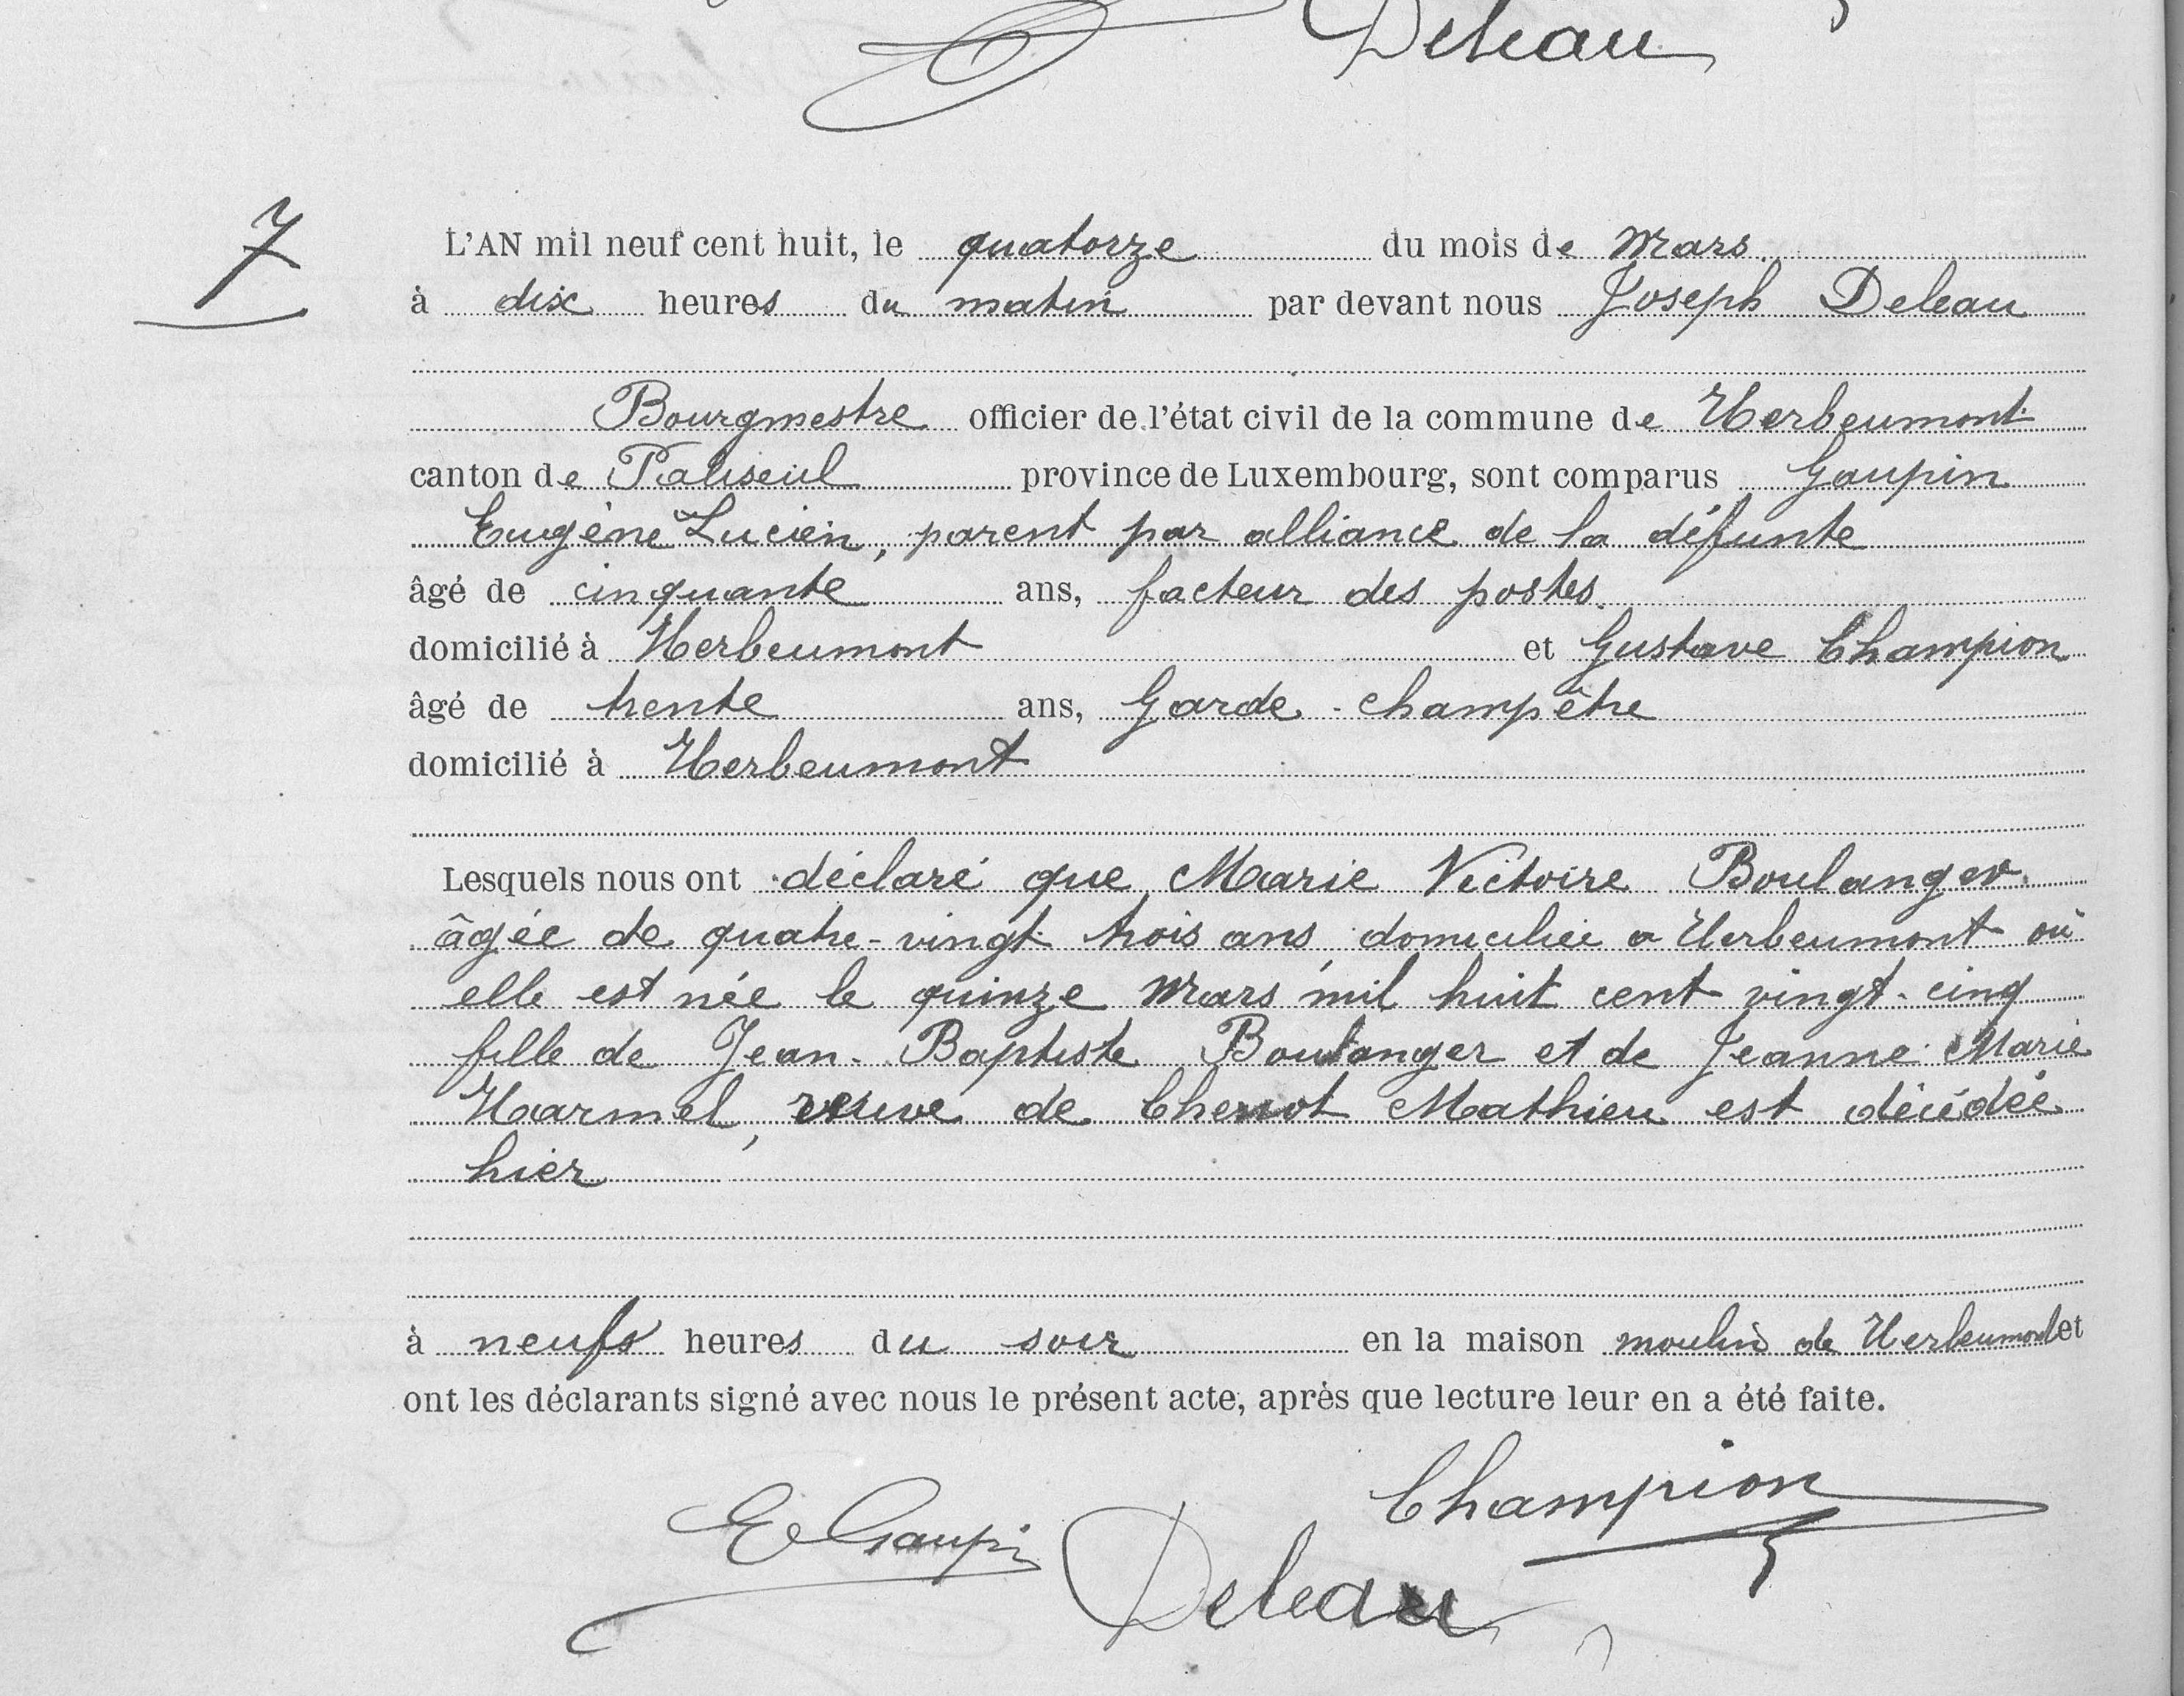 Deleau
7
L'AN mil neuf cent huit, le quatorze du mois de Mars.
à dix heures du matin par devant nous Joseph Deleau
Bourgmestre officier de l'état civil de la commune de Herbeumont
canton de Paliseul province de Luxembourg, sont comparus Goupin
Eugène Lucien, parent par alliance de la défunte
âgé de cinquante ans, facteur des postes.
domicilié à Herbeumont et Gustave Champion
âgé de trente ans, Garde-champêtre
domicilié à Herbeumont
Lesquels nous ont déclaré que Marie Victoire Boulanger
âgée de quatre-vingt trois ans, domiciliée a Herbeumont où
elle est née le quinze Mars mil huit cent vingt-cinq
fille de Jean-Baptiste Boulanger et de Jeanne Marie
Harmel, veuve de Chenot Mathieu est décédée
hier
à neufs heures du soir en la maison moulin de Herbeumont et
ont les déclarants signé avec nous le présent acte, après que lecture leur en a été faite.
Champion
E Gaupin
Deleau